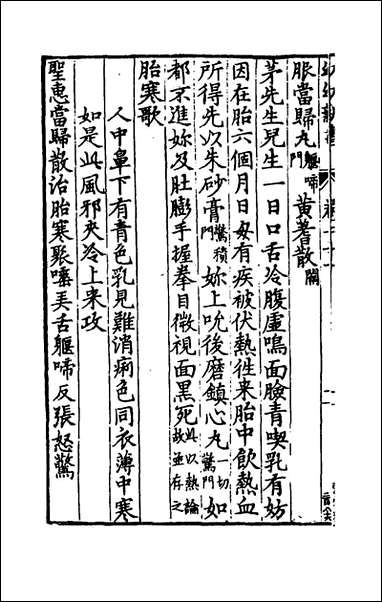 脹當歸丸軀啼門黃蓍散闕
茅先生兒生一日口舌冷腹虛鳴面臉青喫乳有妨
因在胎六個月日母有疾被伏熱徃来胎中飲熱血
所得先以朱砂膏驚積門妳上吮後磨鎮心丸一切驚門如
都不進妳及肚膨手握拳目微視面黑死此以熱論故並存之
胎寒歌
人中鼻下有青色乳見難消痢色同衣薄中寒
如是此風邪夾冷上来攻
聖惠當歸散治胎寒聚囁弄舌軀啼反張怒驚